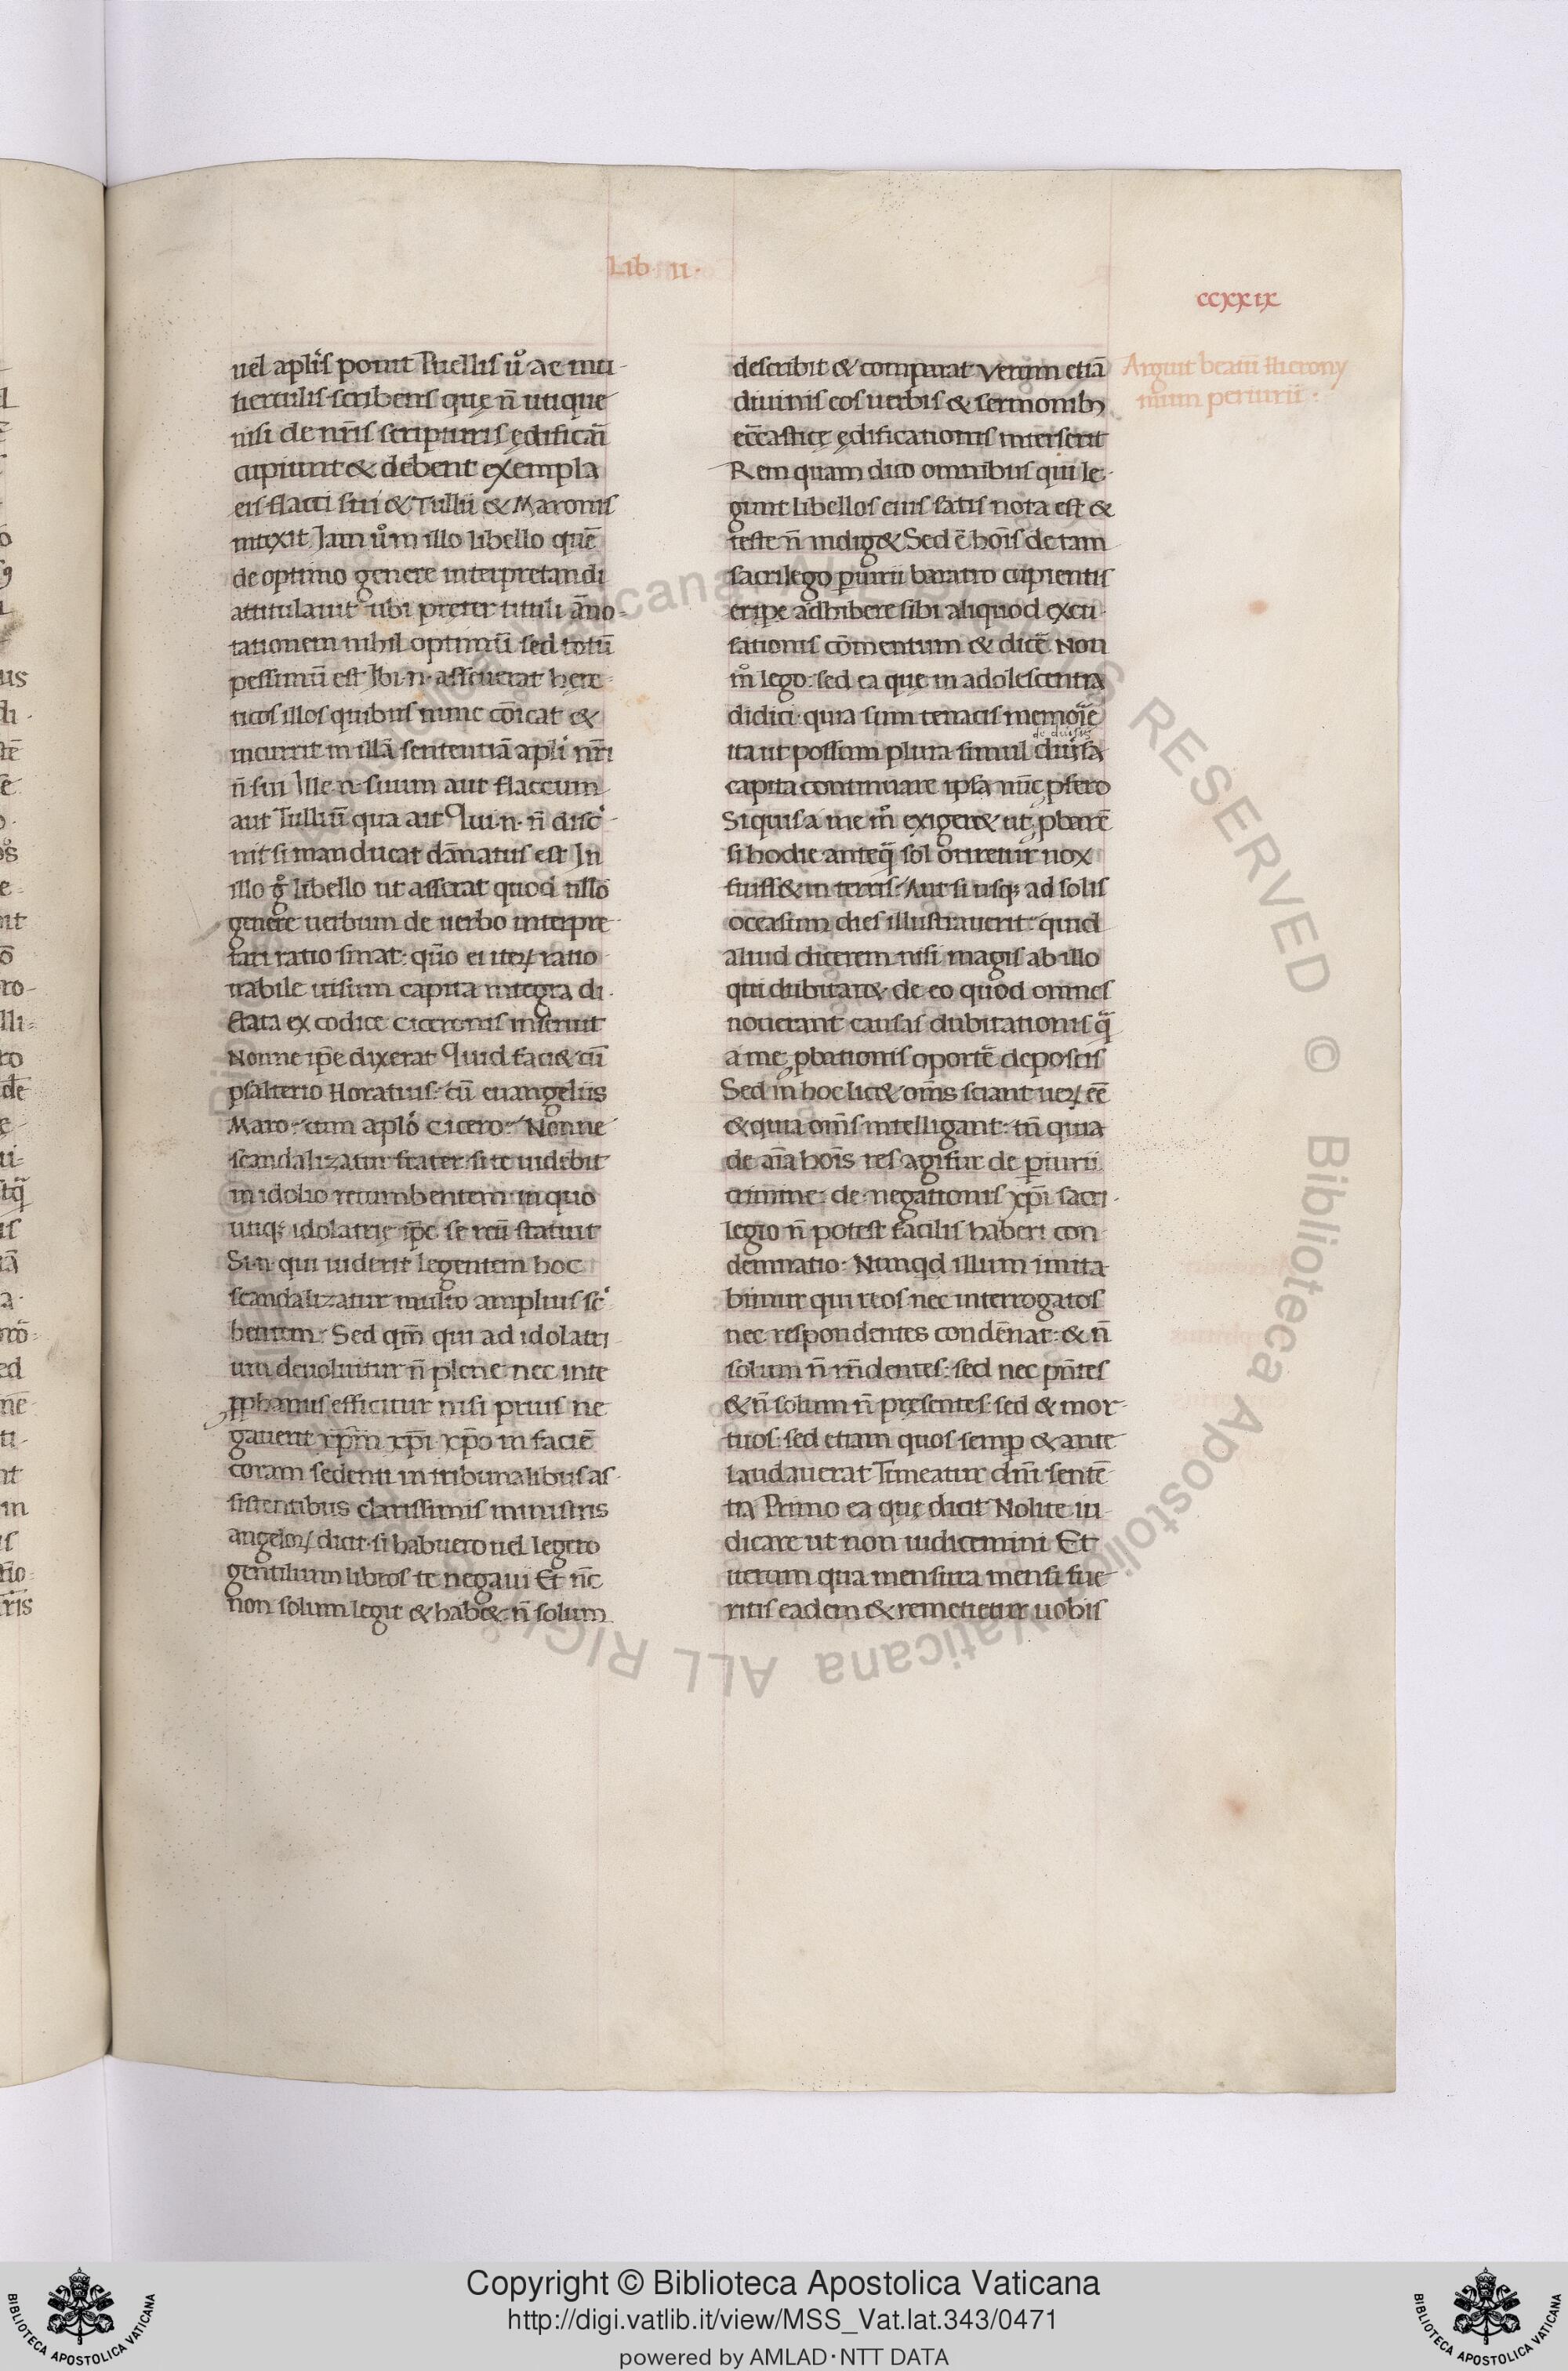 Lib · II ·
ccxxıx
uel aplı̃s ponit Puellis ů ac mu-
lierculis scribens quę ñ utique
nisi de nr̃is scripturis ędificari
cupiunt & debent exempla
eis flacci sui & Tullii & Maronis
intexit Jam ů in illo libello quē
de optimo genere interpretandi
attitulauit ubi pręter tituli āno-
tationem nihil optimū sed totū
pessimū est Ibi · n · asseuerat here-
ticos illos quibus nunc cōicat &
incurrit in illā sententiā apli nr̃i
ñ sui Ille · n · suum aut flaccum
aut Tulliū qua ait Qui · n · ñ disc̾
nit si manducat dānatus est In
illo g̊ libello ut asserat quod illo
genere uerbum de uerbo interpre-
tari ratio sinat: quō ei iteꝝ ratio-
nabile uisum capita integra di-
ctata ex codice ciceronis inseruit
Nonne ip̄e dixerat Quid faci& cū
psalterio Horatius: cū euangeliis
Maro: cum aplō cicero: Nonne
scandalizatur frater: si te uiderit
in idolio recumbentem in quo
utiqꝫ idolatrię ip̄e se reū statuit
Si · n · qui uiderit legentem hoc
scandalizatur multo amplius sc̾
bentem: Sed qm̃ qui ad idolatri-
um deuoluitur ñ plene nec inte
ꝓphanus efficitur nisi prius ne
gauerit xp̄m xp̄i xp̄o in faciē
coram sedenti in tribunalibus as-
sistentibus clarissimis ministris
angeloꝝ dicit · si habuero uel legero
gentilium libros te negaui Et nc̄
non solum legit & hab& · ñ solum
describit & comparat Verum etiā
diuinis eos uerbis & sermonibꝫ
ecc̄asticę ędificationis interserit
Rem quam dico omnibus qui le-
gunt libellos eius satis nota est &
teste ñ indig& Sed ē hoīs de tam
sacrilego ꝑiurii baratro cupientis
eripe adhibere sibi aliquod excu-
sationis cōmentum & dicē Non
m̊ lego: sed ea que in adolescentia
didici · quia sum tenacis memorię
de diuisis
ita ut possum plura simul diuisa
capita continuare ipsa nūc ꝓfero
Si quis a me m̊ exiger& ut ꝓbarē
si hodie anteq̃ sol oriretur nox
fuiss& in terris: Aut si usqꝫ ad solis
occasum dies illustrauerit: quid
aliud dicerem nisi magis ab illo
qui dubitar& de eo quod omnes
nouerant causas dubitationis q̃
a me ꝓbationis oportē deposcis
Sed in hoc lic& om̄s sciant ueꝝ eē
& quia om̄s intelligant: tn̄ quia
de aīa hoīs res agitur de ꝑiurii
crimine: de negationis xp̄i sacri-
legio ñ potest facilis haberi con
demnatio: Nunqd illum imita
bimur qui reos nec interrogatos
nec respondentes condēnat: & ñ
solum ñ rñdentes: sed nec pn̄tes
& ñ solum ñ pręsentes: sed & mor-
tuos: sed etiam quos semp̱ & ante
laudauerat Timeatur dn̄i sentē-
tia Primo ea que dicit Nolite iu
dicare ut non iudicemini Et
iterum qua mensura mensi fue
ritis eadem & remetietur uobis
Arguit beatū Hierony
mum periurii:
Copyright © Biblioteca Apostolica Vaticana
http://digi.vatlib.it/view/MSS_Vat.lat.343/0471
powered by AMLAD·NTT DATA